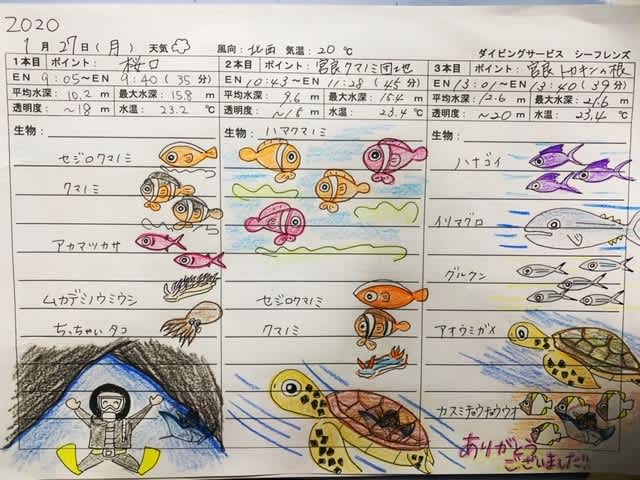 2020
1月27日(月) 天気 風向:北西 気温:20℃
ダイビングサービス シーフレンズ
1本目 ポイント: 桜口
EN 9:05〜EN 9:40 (35分)
平均水深: 10.2 m 最大水深: 15.8 m
透明度: 〜18 m 水温: 23.2 ℃
生物:
セジロクマノミ
クマノミ
アカマツカサ
ムカデミノウミウシ
ちっちゃいタコ
2本目 ポイント: 宮良クマノミ団地
EN 10:43〜EN 11:28 (45分)
平均水深: 9.6 m 最大水深: 15.4 m
透明度: 〜18 m 水温: 23.4 ℃
生物: ハマクマノミ
セジロクマノミ
クマノミ
3本目 ポイント: 宮良 トカキンの根
EN 13:01〜EN 13:40 (39分)
平均水深: 12.6 m 最大水深: 21.6 m
透明度: 〜20 m 水温: 23.4 ℃
生物:
ハナゴイ
イソマグロ
グルクン
アオウミガメ
カスミチョウチョウウオ
ありがとう
ございました!!